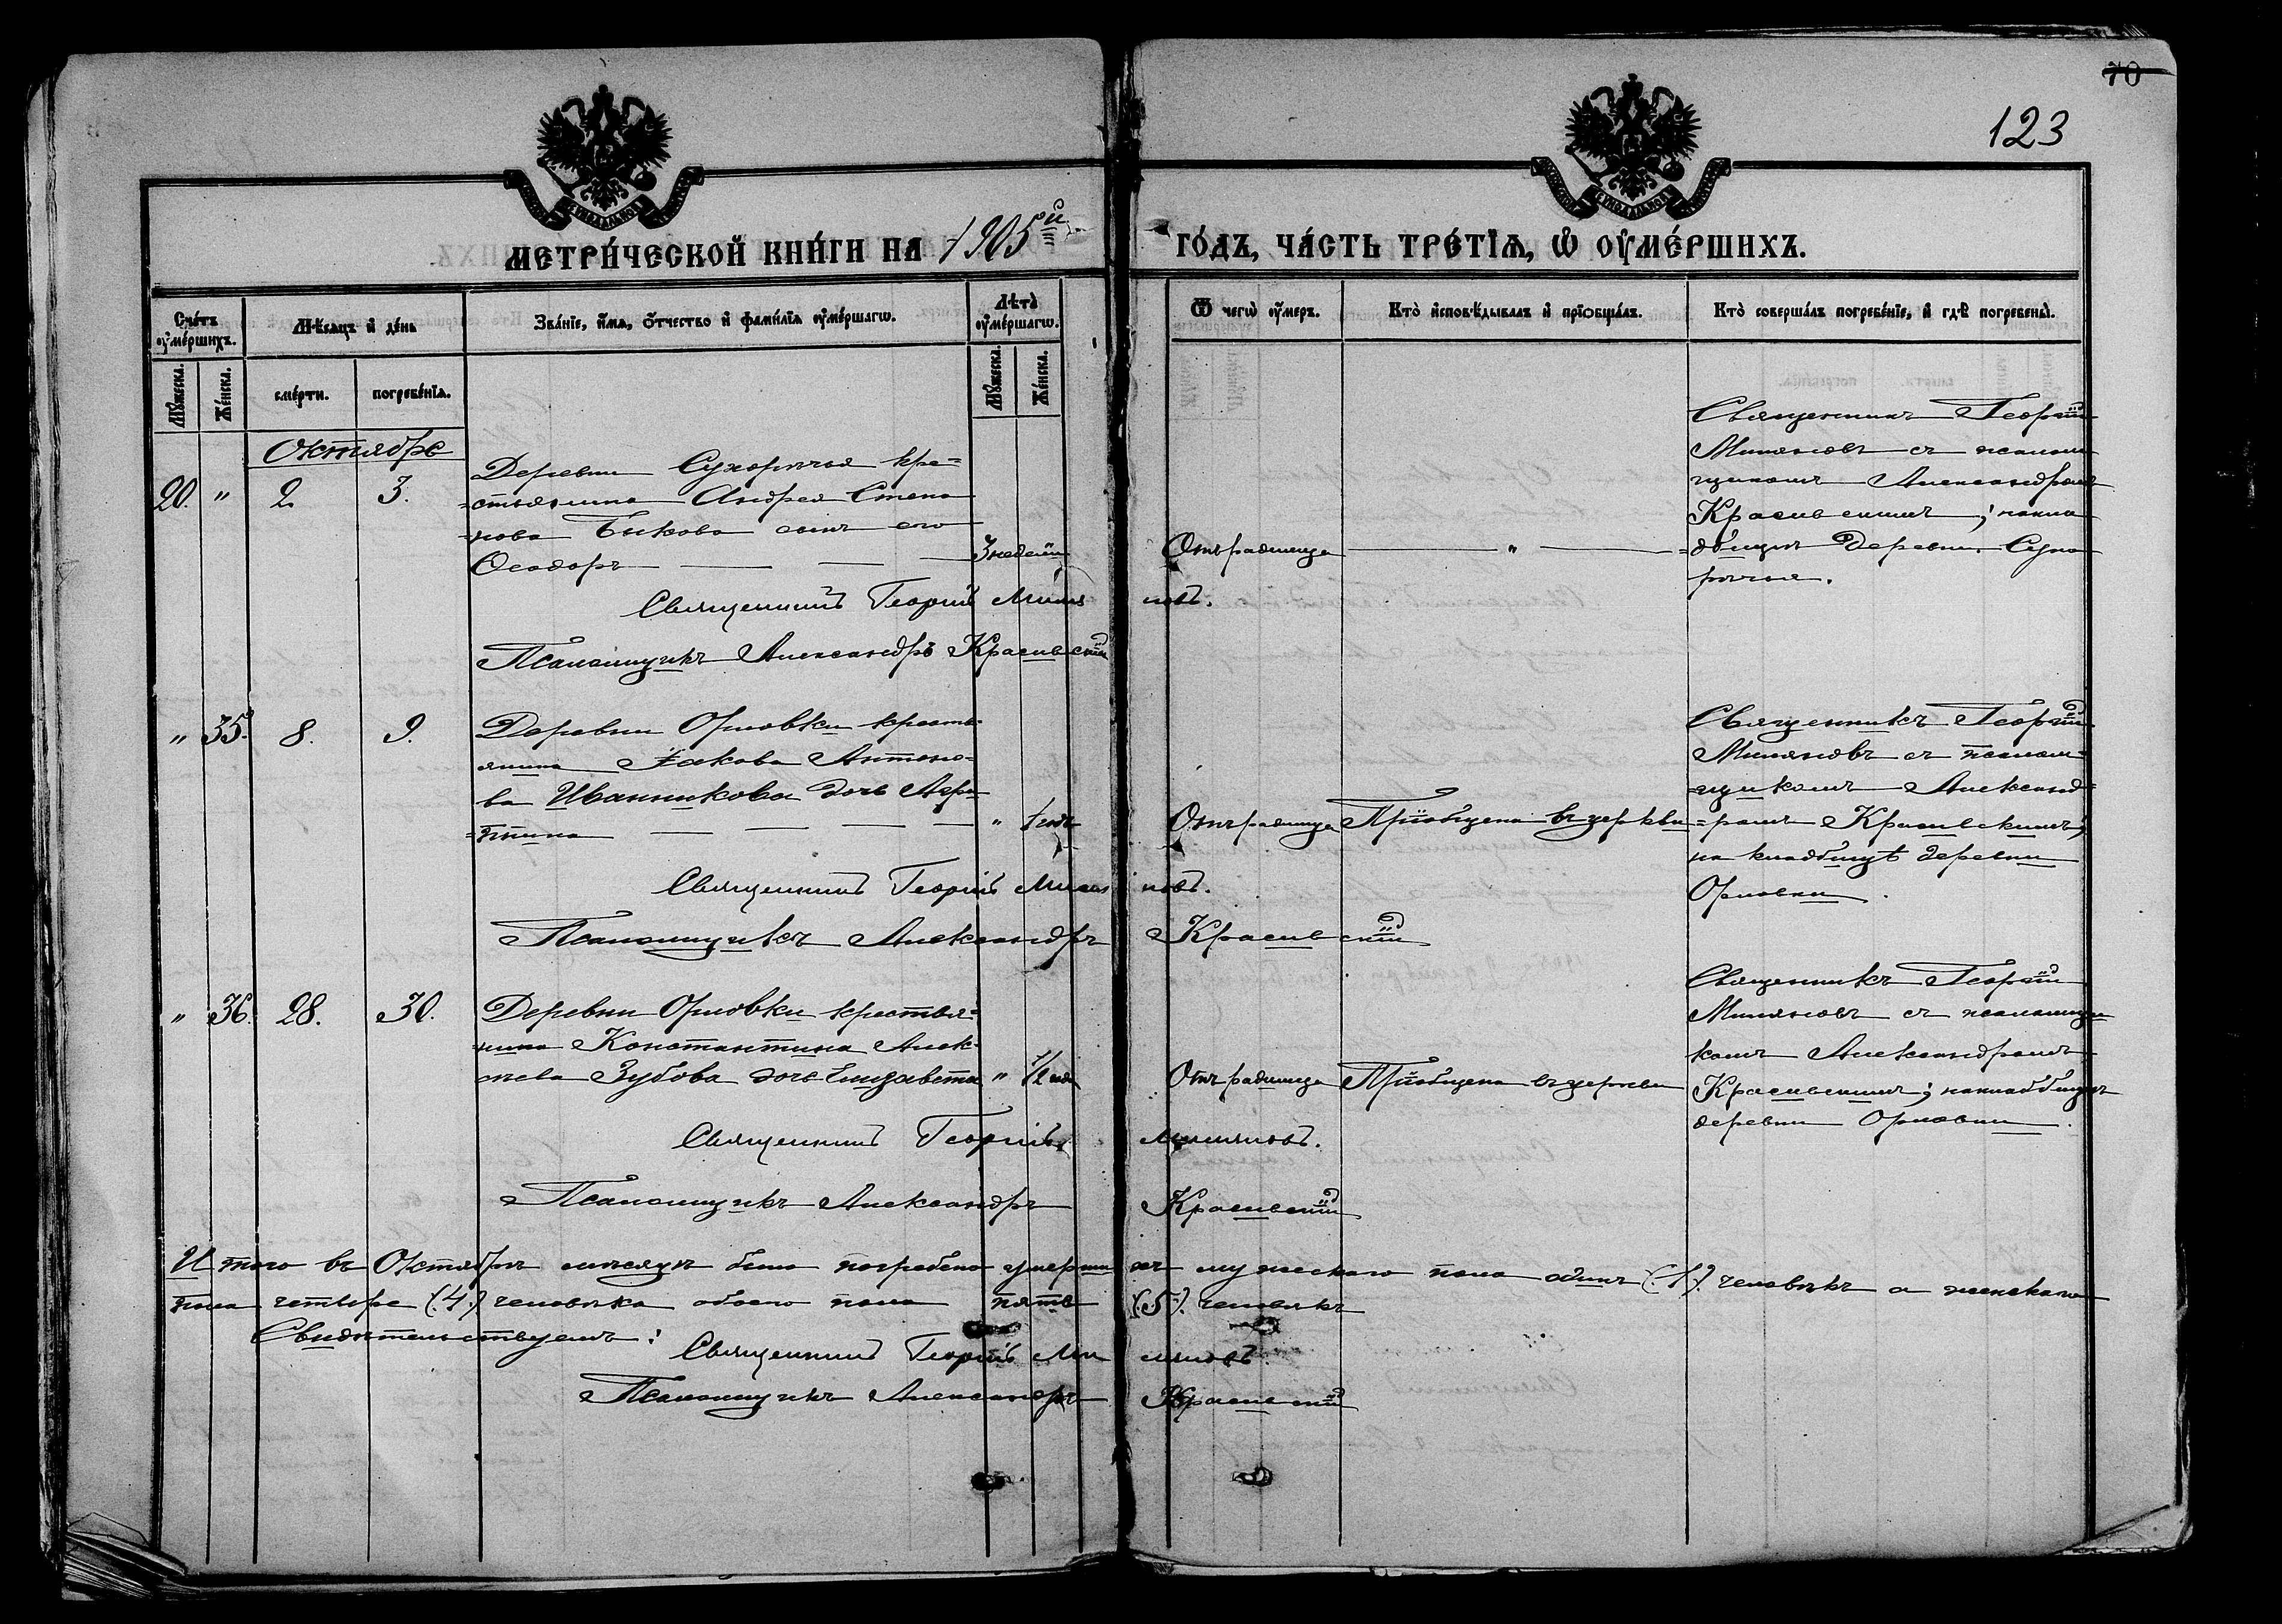 70
123
МЕТРИ́ЧЕСКОЙ КНИ́ГИ НА 1905й ГО́ДЪ, ЧА́СТЬ ТРЕ́ТІѦ, Ѡ ОУМЕ́РШИХЪ.
Сче́тъ оумершихъ.
Мѣсяцъ и де́нь
Зва́нїе, и́мѧ, о́тчество и фами́лїѧ оуме́ршагѡ.
Лѣта̀ оуме́ршагѡ.
Ѿ чегѡ̀ оу́меръ.
Кто̀ и҆сповѣ́дывалъ и҆ прїѡбща́лъ.
Кто̀ соверша́лъ погребе́нїе, и҆ гдѣ̀ погребены̀.
Мꙋ́жеска.
Же́нска.
сме́рти.
погребе́нїѧ.
Мꙋ́жеска.
Же́нска.
Октябрь
20. " 2. 3.
Деревни Сухоричья кре=
=стьянина Андрея Степа
=нова Быкова сынъ его
Ѳеодоръ
3 недѣли
Отъ родимца
"
Священникъ Георгій
Миляновъ съ псалом
щикомъ Александромъ
Красивскимъ; на кла
=дбищѣ деревни Сухо
ричья.
Священникъ Георгій Миля новъ.
Псаломщикъ Александръ Красивскій
" 35. 8. 9.
Деревни Орловки кресть
янина Іакова Антоно=
ва Иванникова дочь Агри
=пина
" 1 годъ
Отъ родимца
Пріобщена въ церкви
Священникъ Георгій
Миляновъ съ псалом=
=щикомъ Александ=
=ромъ Красивскимъ;
на кладбищѣ деревни
Орловки.
Священникъ Георгій Миля новъ.
Псаломщикъ Александръ Красивскій
" 36. 28. 30.
Деревни Орловки крестья=
=нина Константина Алек=
сѣева Зубова дочь Елизавета
" 1/2 года
Отъ родимца
Пріобщена въ церкви
Священникъ Георгій
Миляновъ съ псаломщи
комъ Александромъ
Красивскимъ; на кладбищѣ
деревни Орловки.
Священникъ Георгій Миляновъ.
Псаломщикъ Александръ Красивскій
Итого въ Октябрѣ мѣсяцѣ было погребено умерши хъ мужескаго пола одинъ (1.) человѣкъ а женскаго
пола четыре (4.) человѣка обоего пола пять (5.) человѣкъ
Свидѣтельствуемъ:
Священникъ Георгій Ми ляновъ.
Псаломщикъ Александръ Красивскій